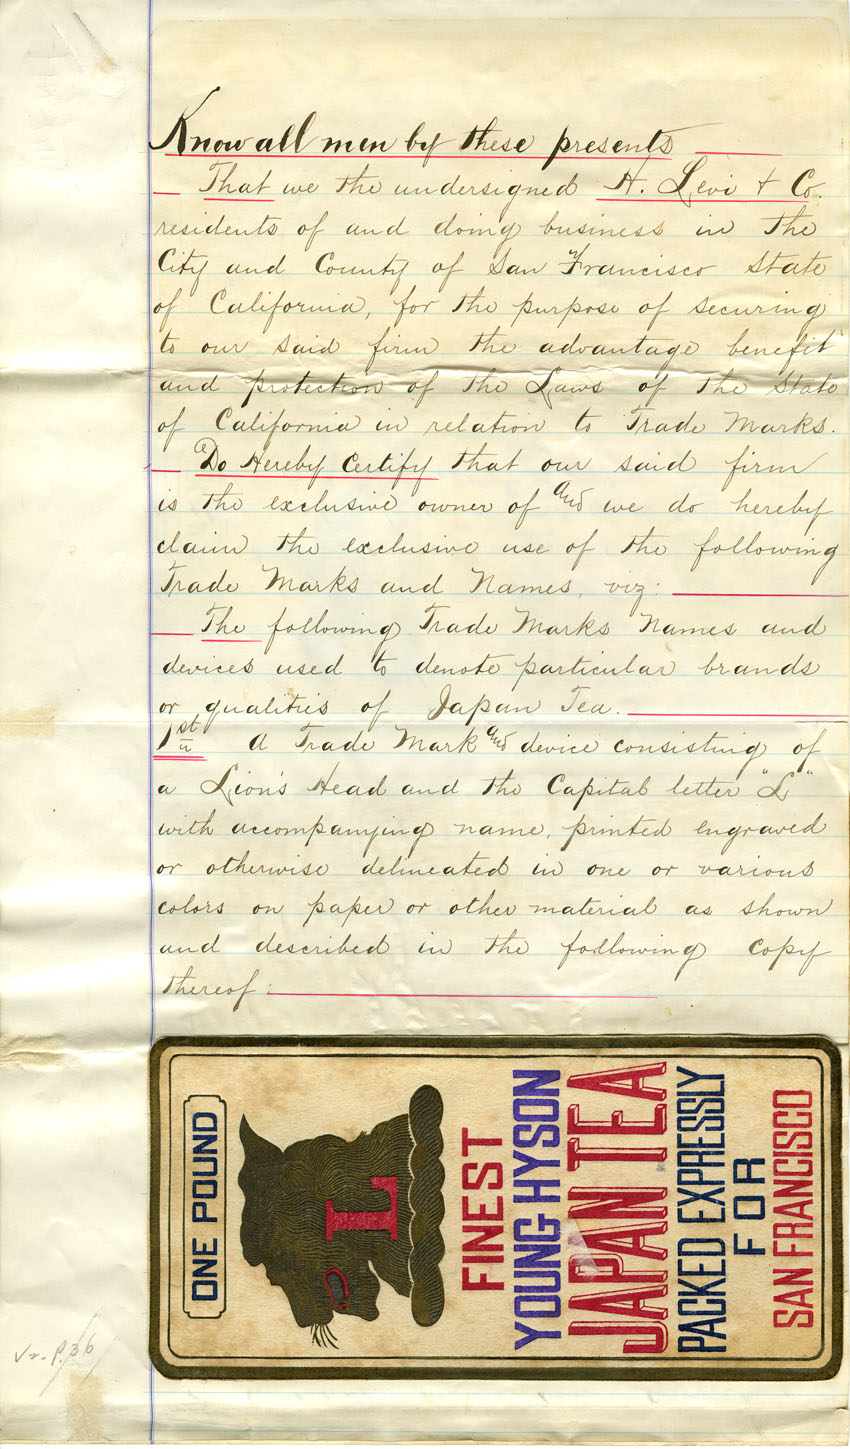 Know all men by these presents
That we the undersigned H. Levi & Co.
residents of and doing business in the
City and County of San Francisco State
of California, for the purpose of securing
to our said firm the advantage benefit
and protection of the Laws of the State
of California in relation to Trade Marks.
Do Hereby Certify that our said firm
is the exclusive owner of and we do hereby
claim the exclusive use of the following
Trade Marks and Names, viz:
The following Trade Marks Names and
devices used to denote particular brands
or qualities of Japan Tea.
1st A Trade Mark and device consisting of
a Lion's Head and the Capital letter "L"
with accompanying name, printed engraved
or otherwise delineated in one or various
colors on paper or other material as shown
and described in the following copy
thereof:
ONE POUND
L
FINEST
YOUNG HYSON
JAPAN TEA
PACKED EXPRESSLY
FOR
SAN FRANCISCO
P. 36